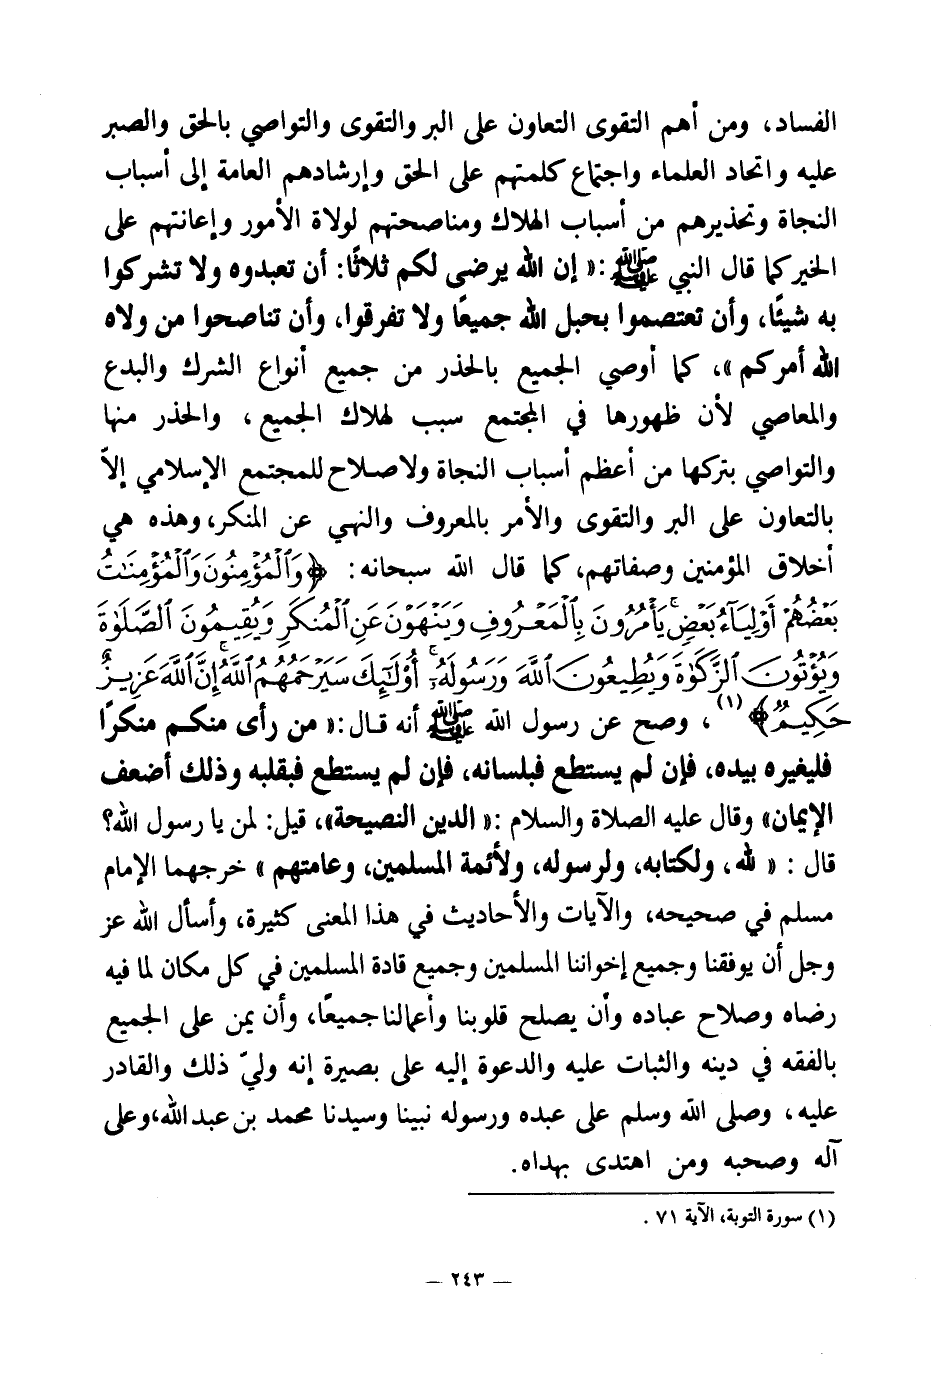 الفساد، ومن أهم التقوى التعاون على البر والتقوى والتواصي بالحق والصبر
عليه واتحاد العلماء واجتماع كلمتهم على الحق وإرشادهم العامة إلى أسباب
النجاة وتحذيرهم من أسباب الهلاك ومناصحتهم لولاة الأمور وإعانتهم على
الخير كما قال النبي ﷺ :« إن الله يرضى لكم ثلاثًا: أن تعبدوه ولا تشركوا
به شيئًا، وأن تعتصموا بحبل الله جميعًا ولا تفرقوا، وأن تناصحوا من ولاه
الله أمركم »، كما أوصي الجميع بالحذر من جميع أنواع الشرك والبدع
والمعاصي لأن ظهورها في المجتمع سبب لهلاك الجميع، والحذر منها
والتواصي بتركها من أعظم أسباب النجاة ولا صلاح للمجتمع الإسلامي إلاّ
بالتعاون على البر والتقوى والأمر بالمعروف والنهي عن المنكر، وهذه هي
أخلاق المؤمنين وصفاتهم، كما قال الله سبحانه: ﴿وَٱلْمُؤْمِنُونَ وَٱلْمُؤْمِنَٰتُ
بَعْضُهُمْ أَوْلِيَآءُ بَعْضٍۚ يَأْمُرُونَ بِٱلْمَعْرُوفِ وَيَنْهَوْنَ عَنِ ٱلْمُنكَرِ وَيُقِيمُونَ ٱلصَّلَوٰةَ
وَيُؤْتُونَ ٱلزَّكَوٰةَ وَيُطِيعُونَ ٱللَّهَ وَرَسُولَهُۥٓۚ أُو۟لَٰٓئِكَ سَيَرْحَمُهُمُ ٱللَّهُۗ إِنَّ ٱللَّهَ عَزِيزٌ
حَكِيمٌ﴾(١)، وصح عن رسول الله ﷺ أنه قال:« من رأى منكم منكرًا
فليغيره بيده، فإن لم يستطع فبلسانه، فإن لم يستطع فبقلبه وذلك أضعف
الإيمان» وقال عليه الصلاة والسلام :« الدين النصيحة»، قيل: لمن يا رسول الله؟
قال : « لله، ولكتابه، ولرسوله، ولأئمة المسلمين، وعامتهم » خرجهما الإمام
مسلم في صحيحه، والآيات والأحاديث في هذا المعنى كثيرة، وأسأل الله عز
وجل أن يوفقنا وجميع إخواننا المسلمين وجميع قادة المسلمين في كل مكان لما فيه
رضاه وصلاح عباده وأن يصلح قلوبنا وأعمالنا جميعًا، وأن يمن على الجميع
بالفقه في دينه والثبات عليه والدعوة إليه على بصيرة إنه وليّ ذلك والقادر
عليه، وصلى الله وسلم على عبده ورسوله نبينا وسيدنا محمد بن عبد الله، وعلى
آله وصحبه ومن اهتدى بهداه.
(١) سورة التوبة، الآية ٧١ .
— ٢٤٣ —